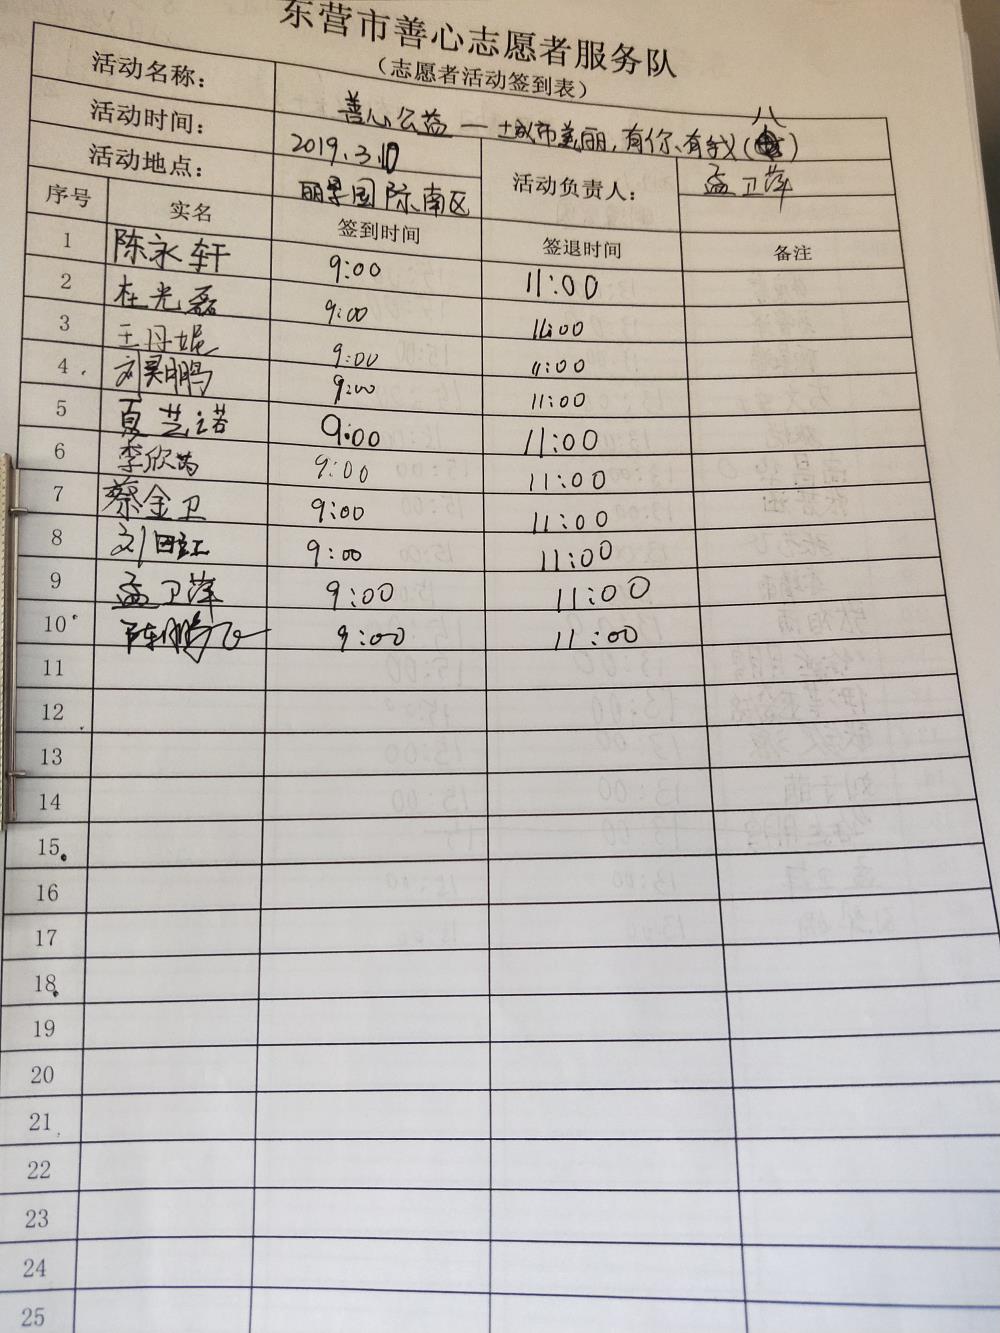 东营市善心志愿者服务队
（志愿者活动签到表）
活动名称： 善心公益—城市美丽,有你、有我(八)
活动时间： 2019.3.10 活动负责人： 孟卫萍
活动地点： 丽景国际南区
序号 实名 签到时间 签退时间 备注
1 陈永轩 9:00 11:00
2 杜光磊 9:00 11:00
3 王丹妮 9:00 11:00
4 刘昊鹏 9:00 11:00
5 夏艺诺 9:00 11:00
6 李欣芮 9:00 11:00
7 蔡金卫 9:00 11:00
8 刘 9:00 11:00
9 孟卫萍 9:00 11:00
10 陈鹏飞 9:00 11:00
11
12
13
14
15
16
17
18
19
20
21
22
23
24
25